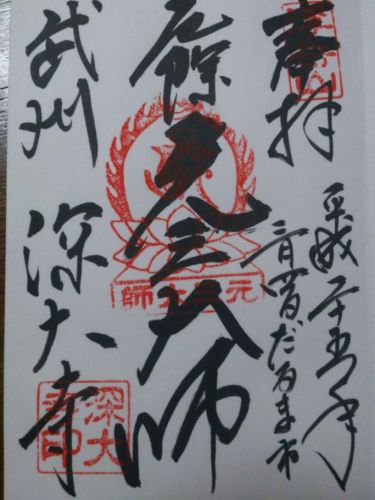 奉拝
平成二十五年
三月四日だるま市
厄除元三大師
武州 深大寺
元三大師
深大寺印